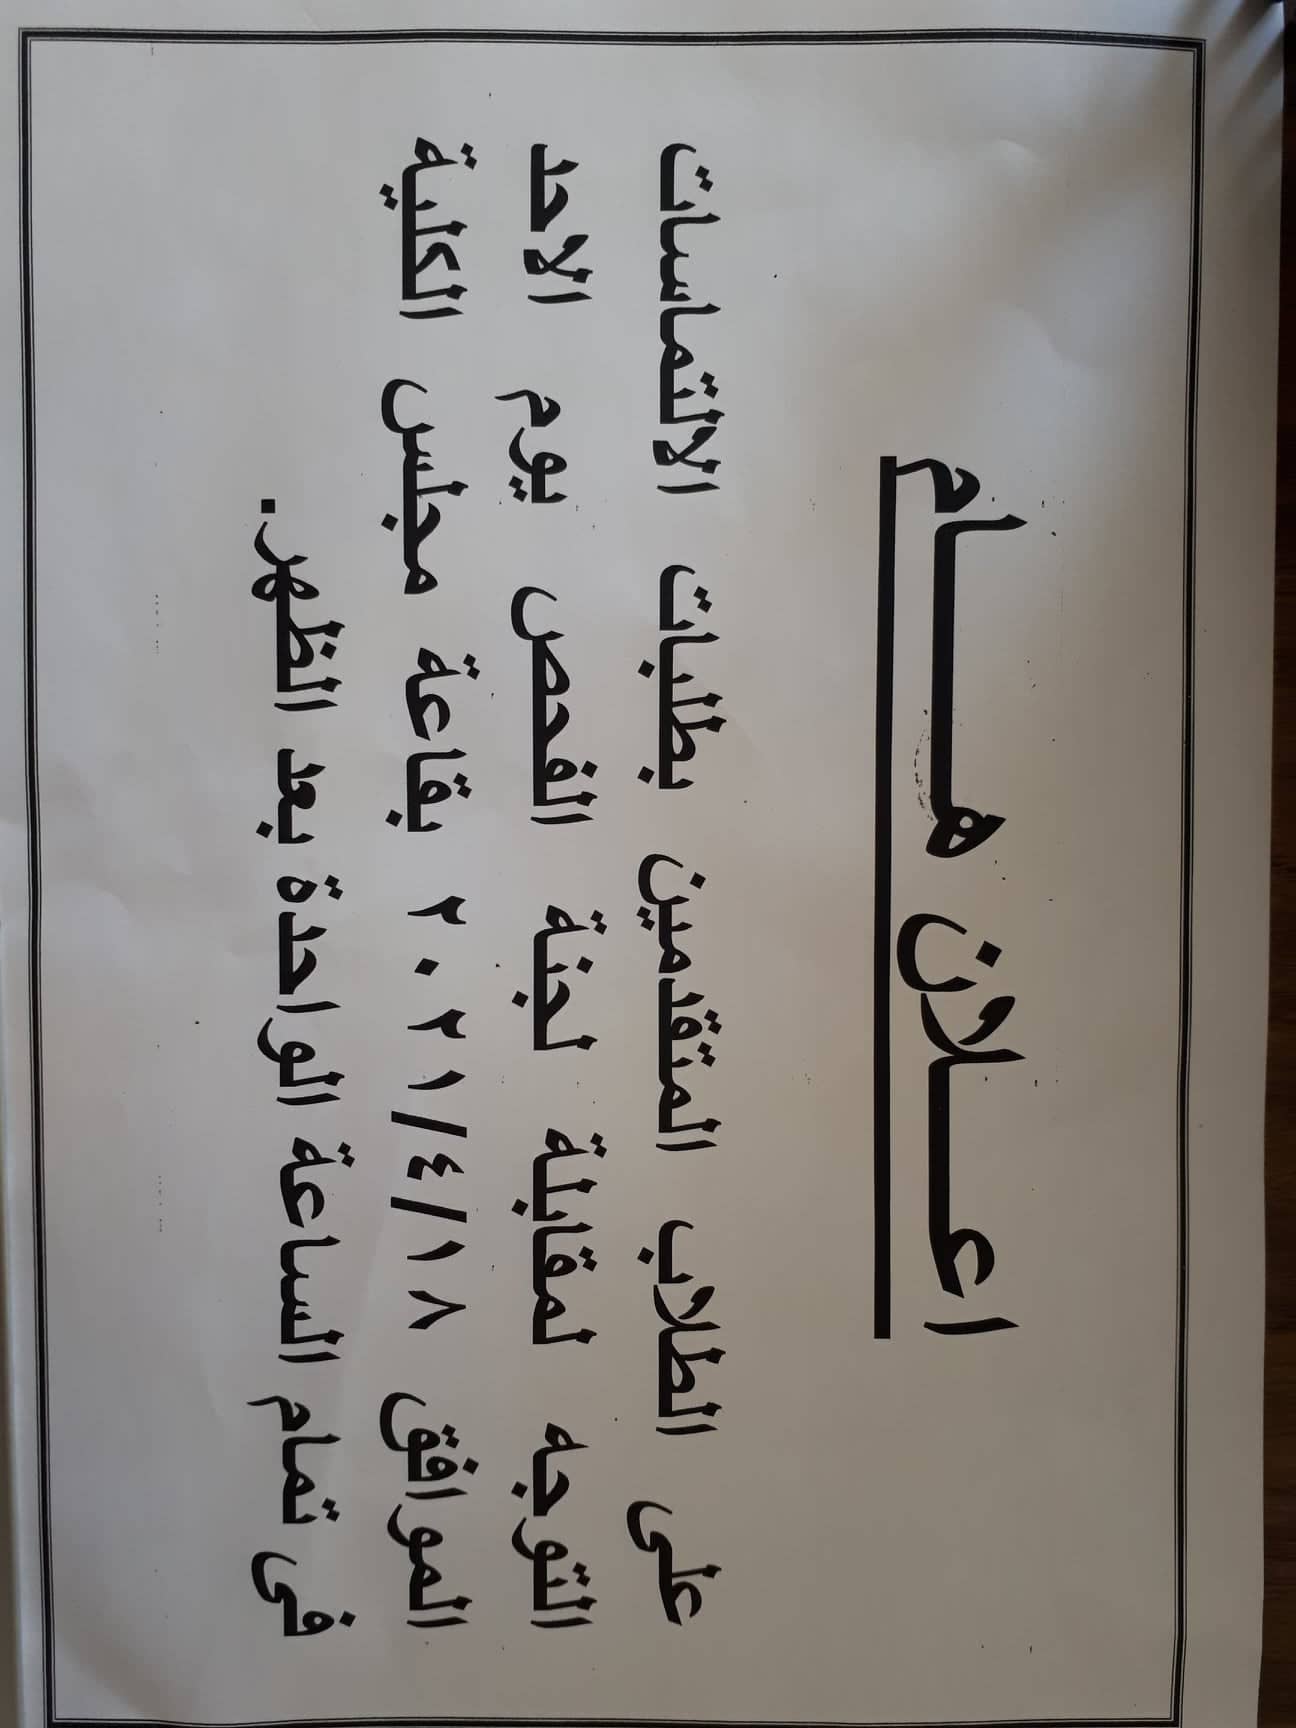 اعــلان هــــام
على الطلاب المتقدمين بطلبات الالتماسات
التوجه لمقابلة لجنة الفحص يوم الاحد
الموافق ٢٠٢١/٤/١٨ بقاعة مجلس الكلية
فى تمام الساعة الواحدة بعد الظهر.